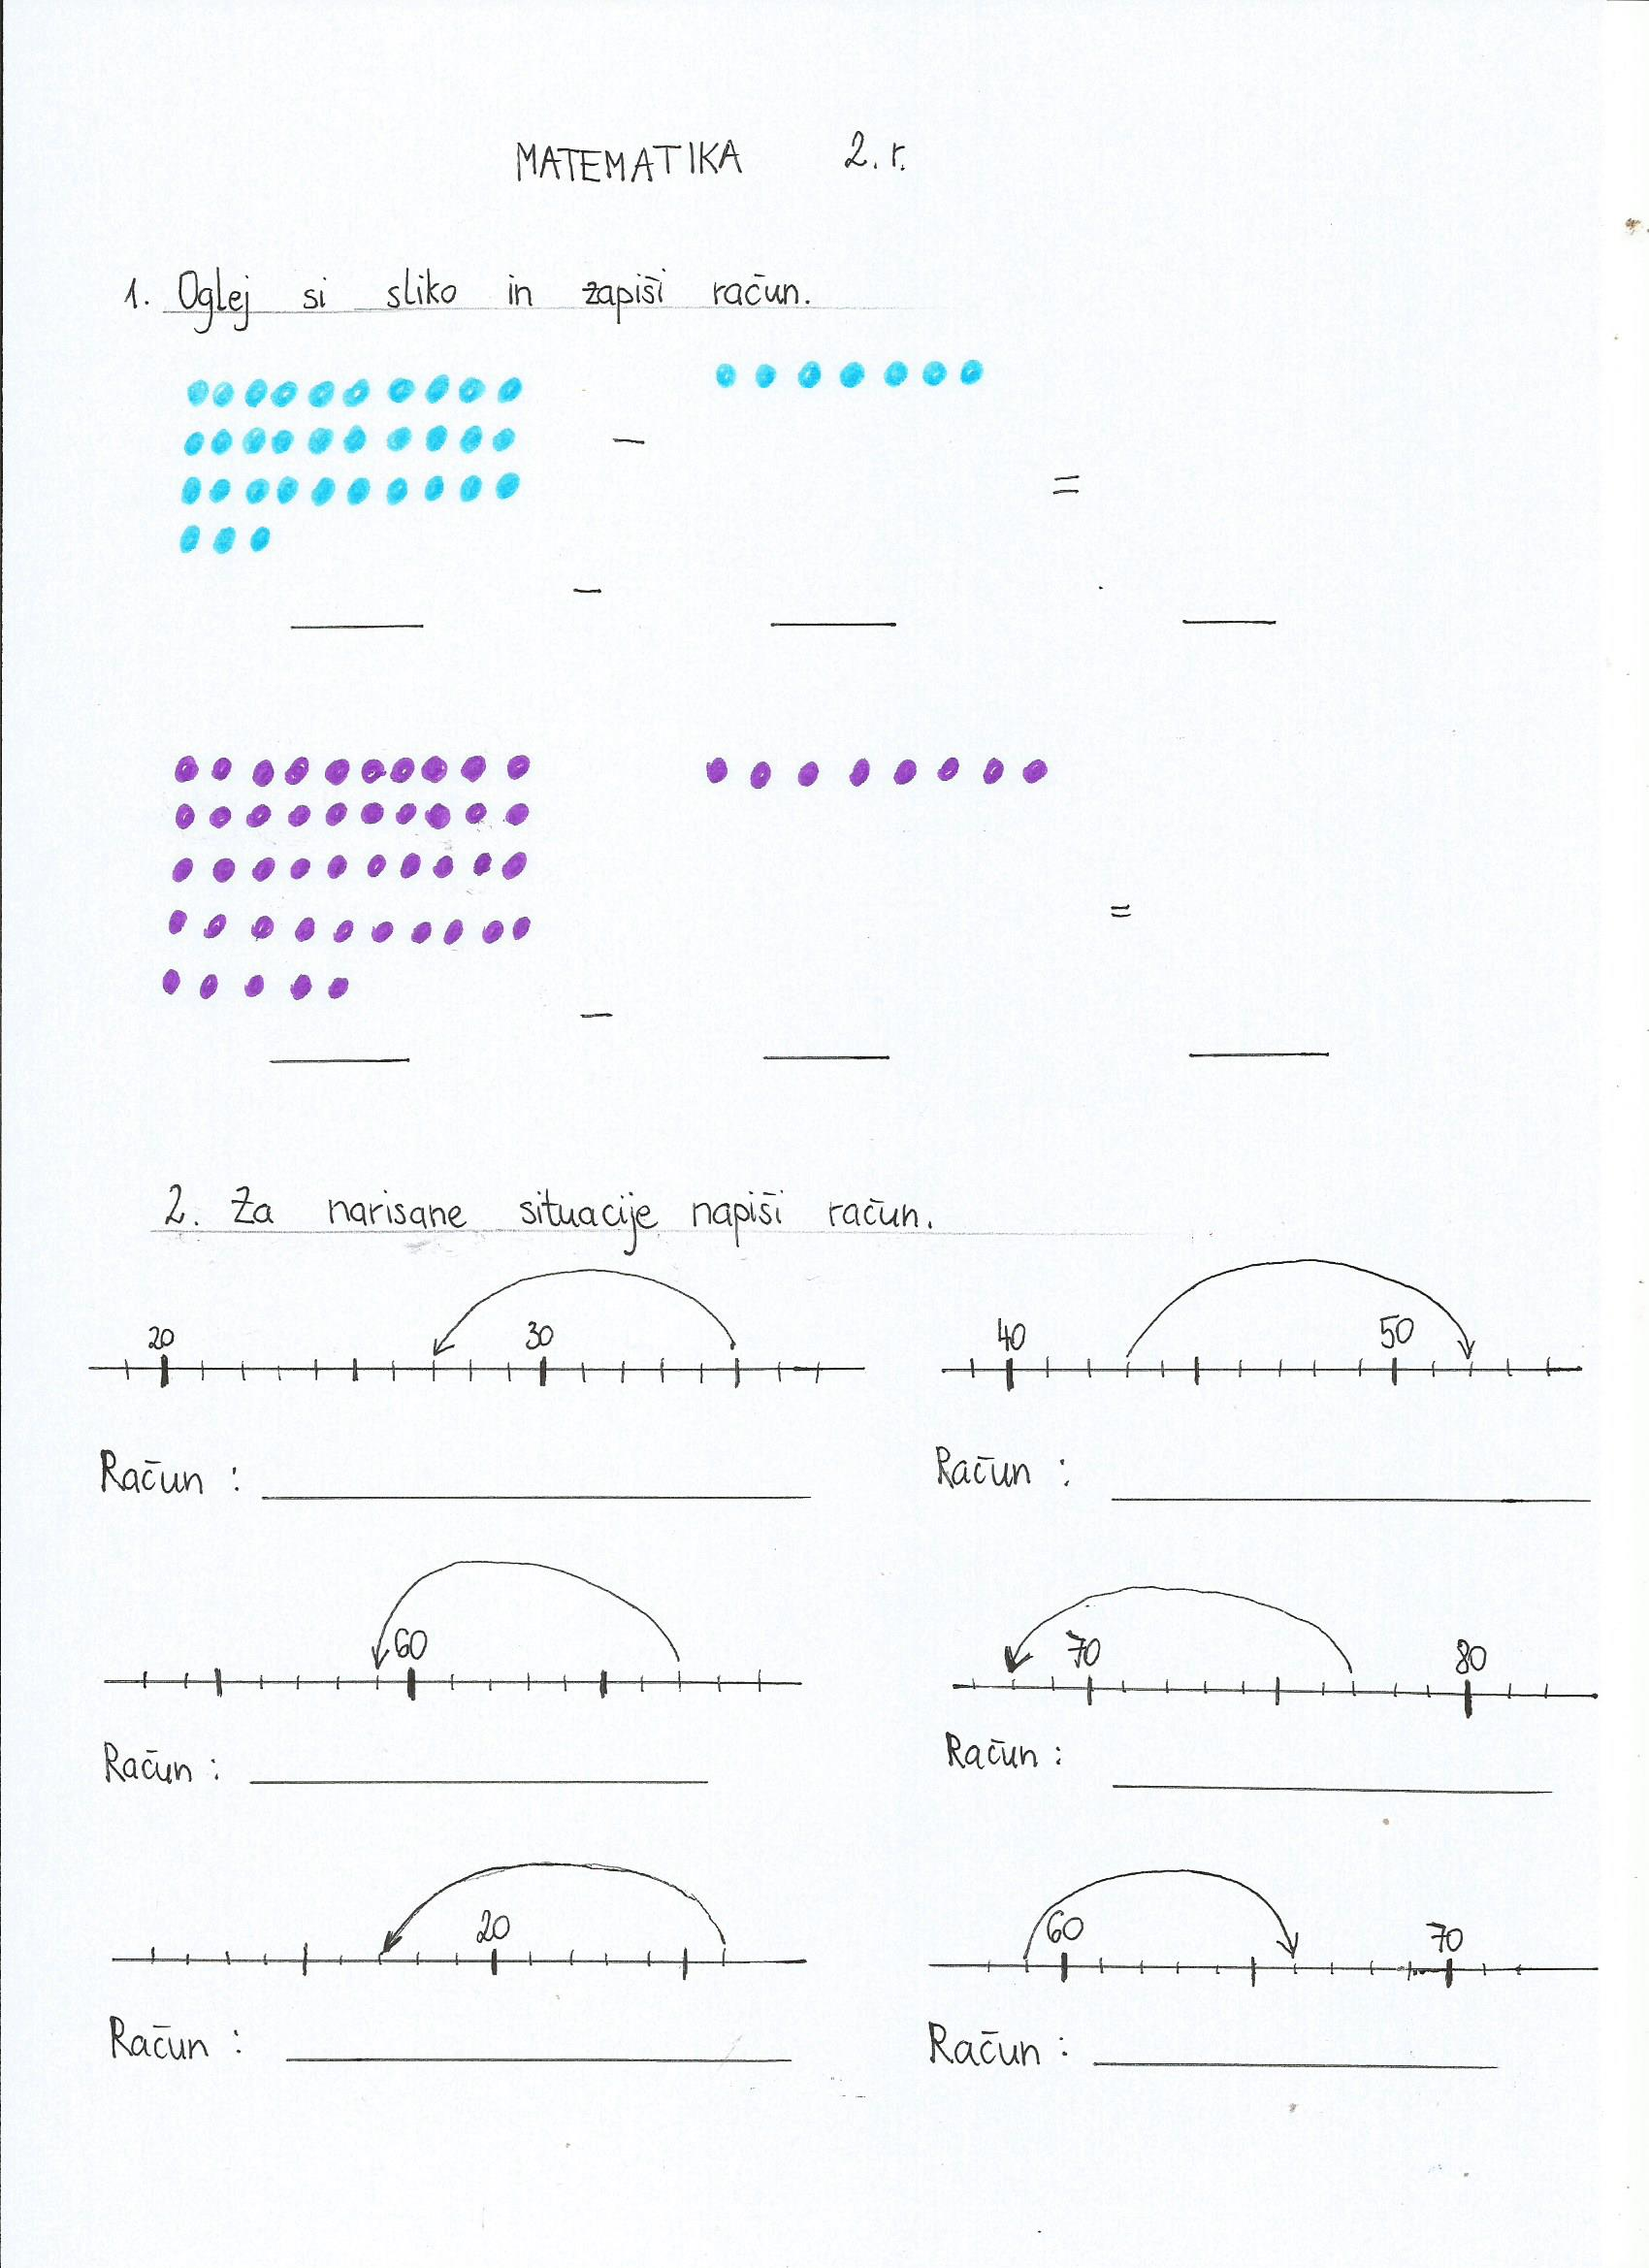 MATEMATIKA 2. r.
1. Oglej si sliko in zapiši račun.
–
=
–
=
–
–
2. Za narisane situacije napiši račun.
20 30
40 50
Račun :
Račun :
60
70 80
Račun :
Račun :
20
60 70
Račun :
Račun :